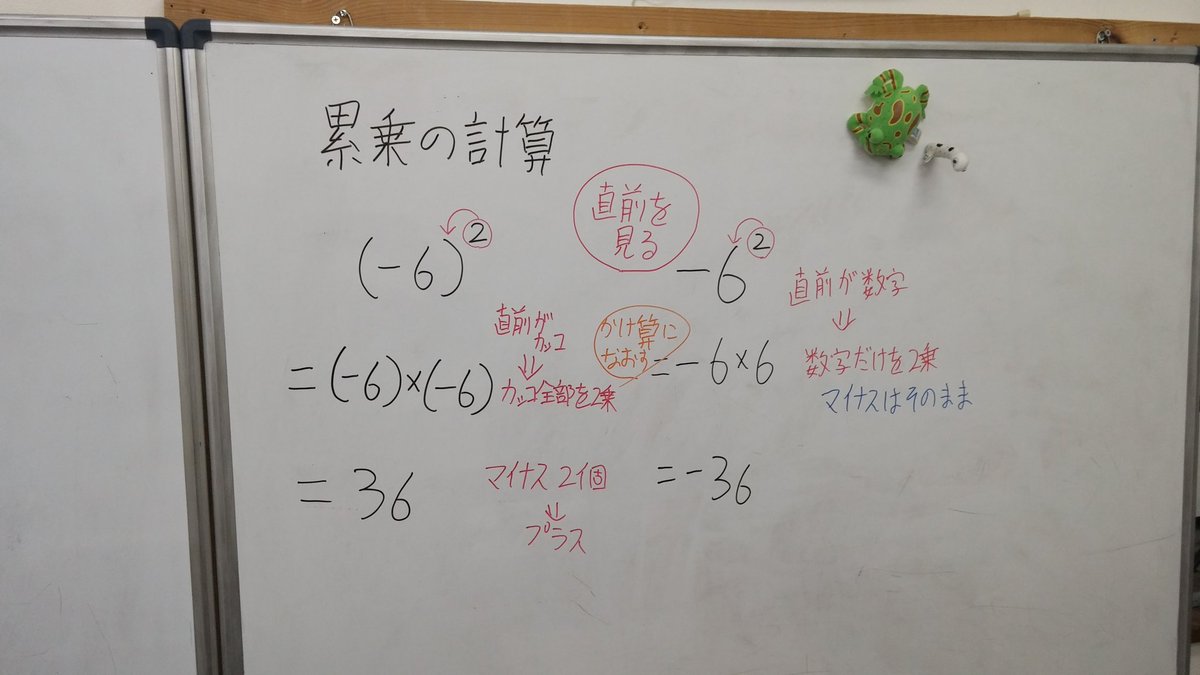 累乗の計算
直前を
見る
(-6)²
-6²
直前が
カッコ
⇓
カッコ全部を2乗
かけ算に
なおす
直前が数字
⇓
数字だけを2乗
マイナスはそのまま
=(-6)×(-6)
=-6×6
=36
マイナス2個
⇓
プラス
=-36